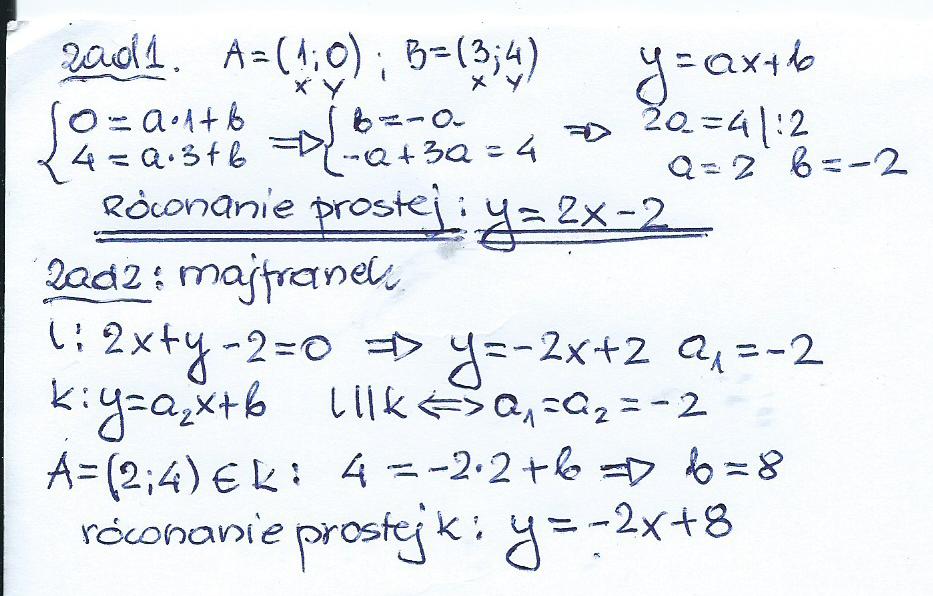 zad1. A=(1;0) ; B=(3;4) y=ax+b
x y x y
{0=a·1+b => {b=-a => 2a=4|:2
{4=a·3+b {-a+3a=4 a=2 b=-2
Równanie prostej: y=2x-2
zad2: majfranek
l: 2x+y-2=0 => y=-2x+2 a₁=-2
k: y=a₂x+b l||k <=> a₁=a₂=-2
A=(2;4)∈k: 4=-2·2+b => b=8
równanie prostej k: y=-2x+8